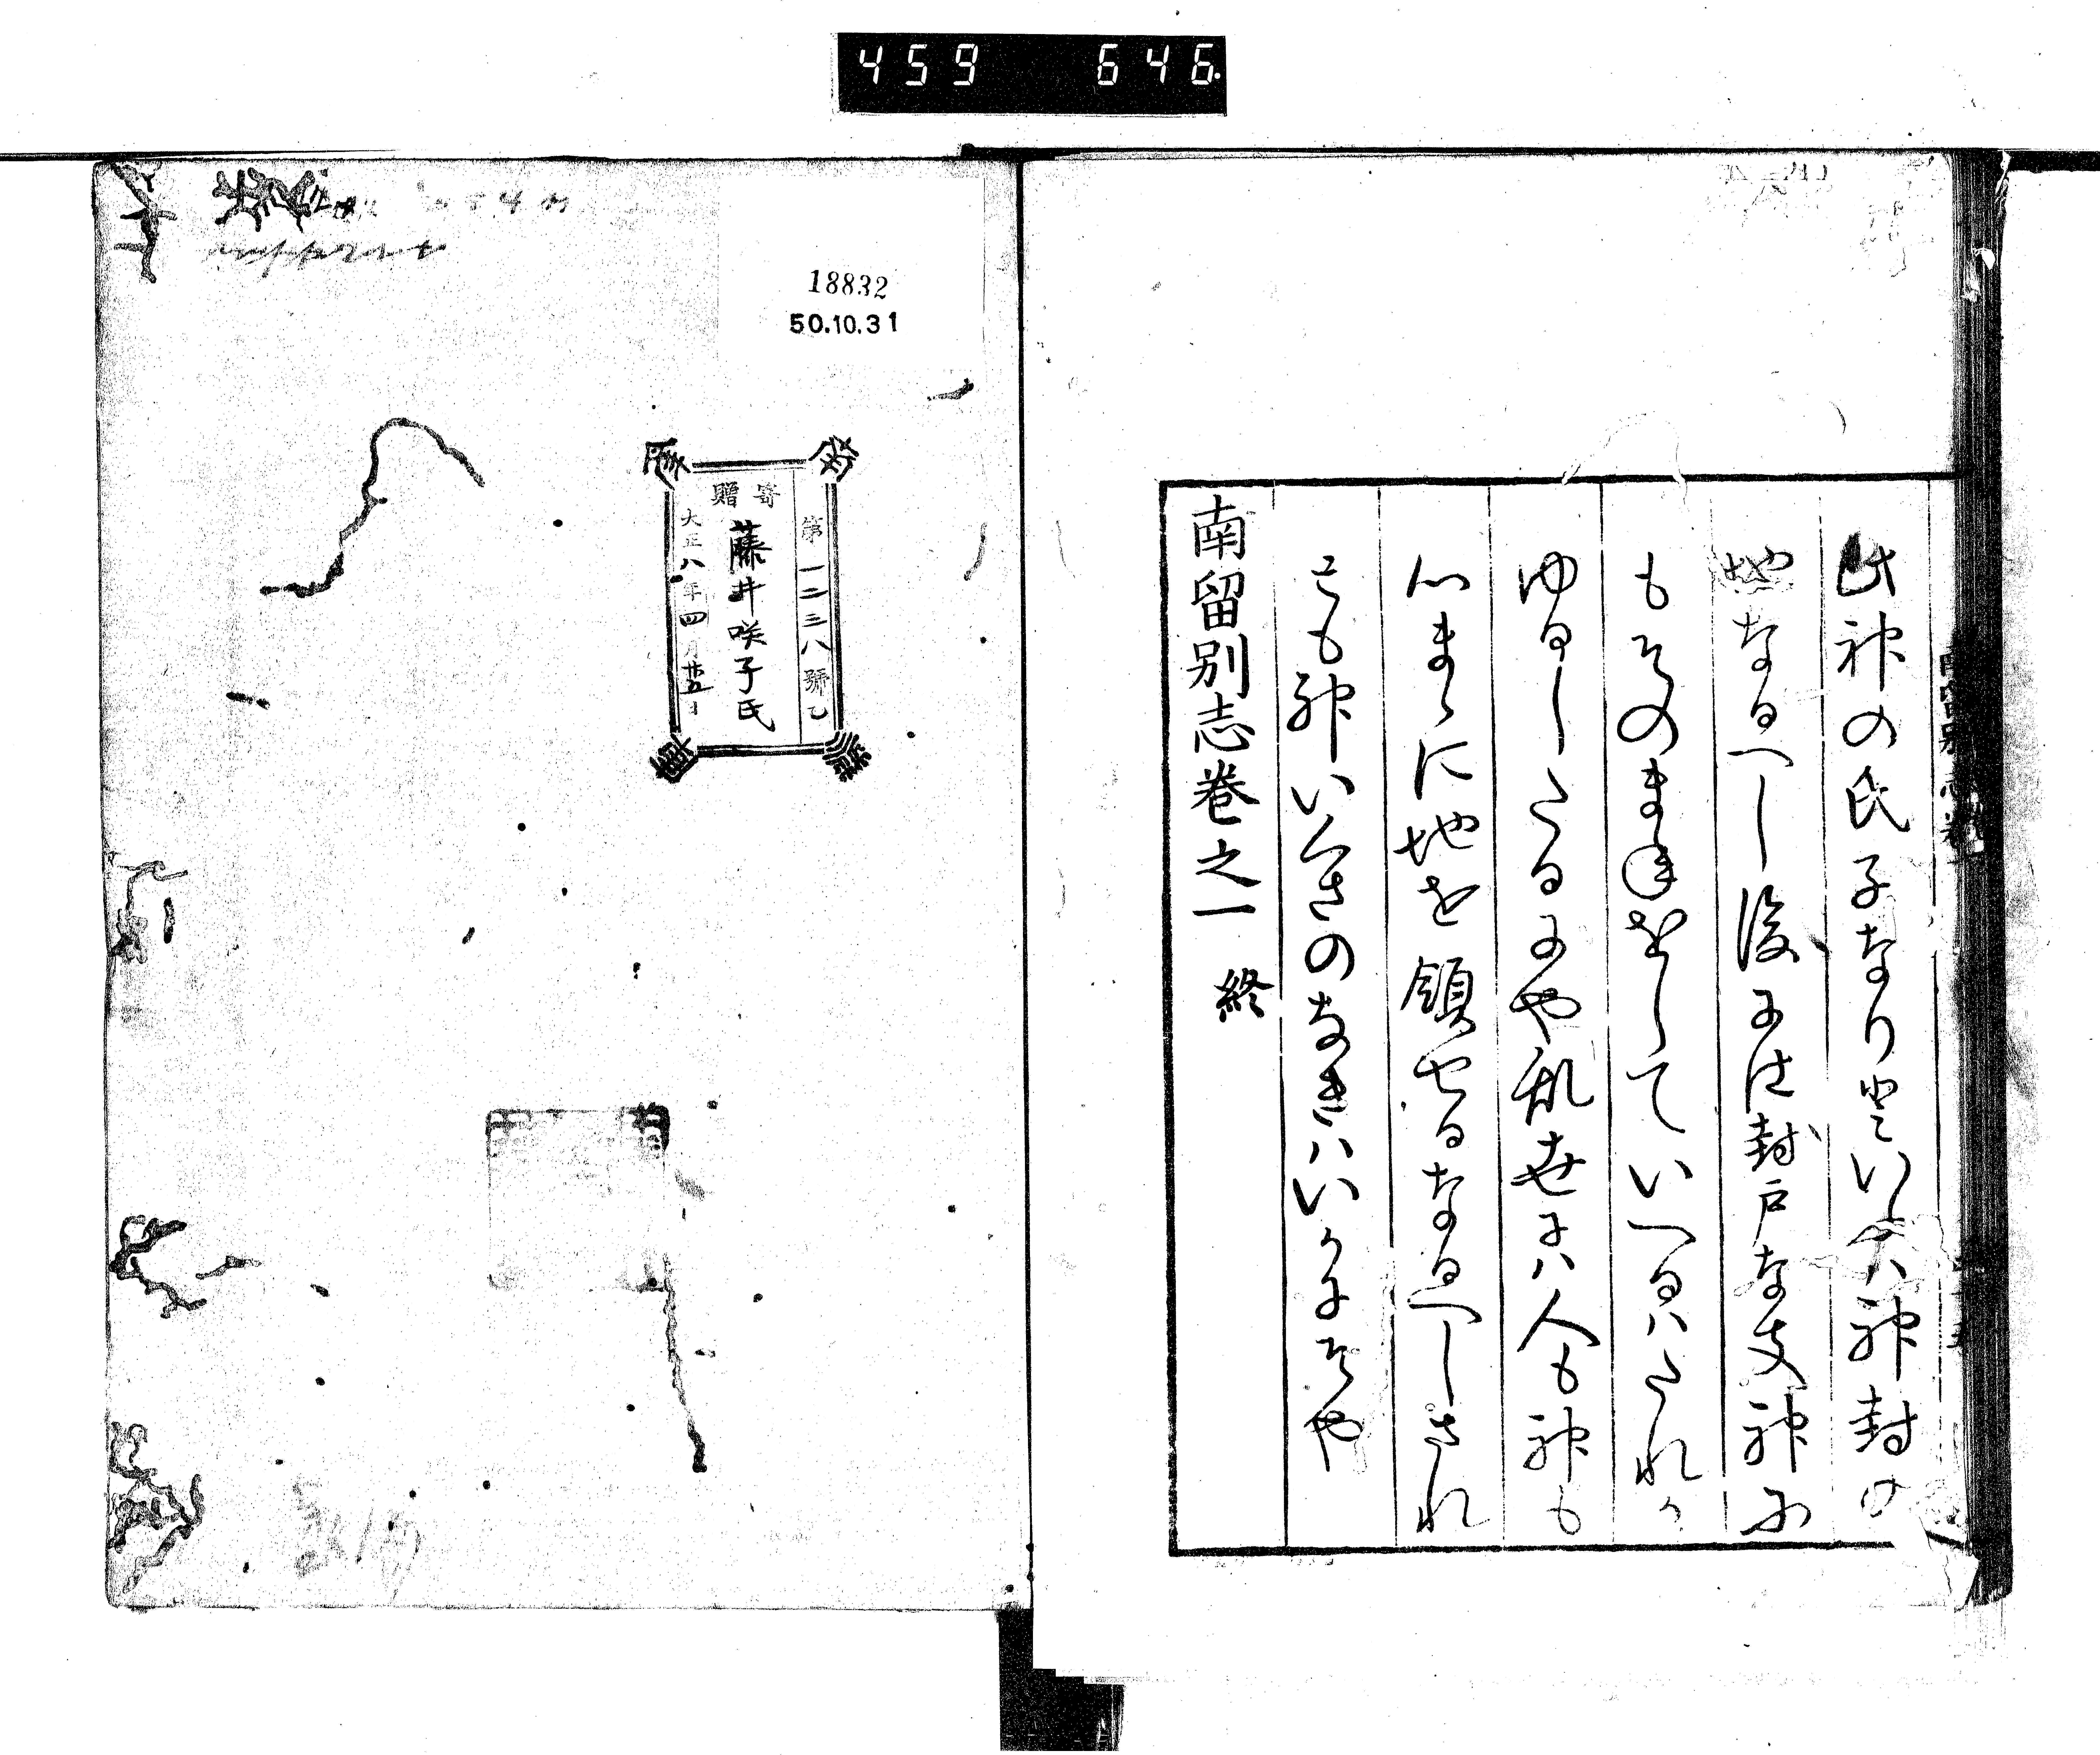 459 646.
此神の氏子なりといふハ神封の
地なるへし後には封戸な支神に
もそのまねをしていへるハたれか
ゆるしたるにや乱世にハ人も神も
心まゝに地を領せるなるへしされ
とも神いくさのなきハいかにそや
南留別志巻之一 終
18832
50.10.31
第一二三八號乙
寄贈
藤井咲子氏
大正八年四月廿五日